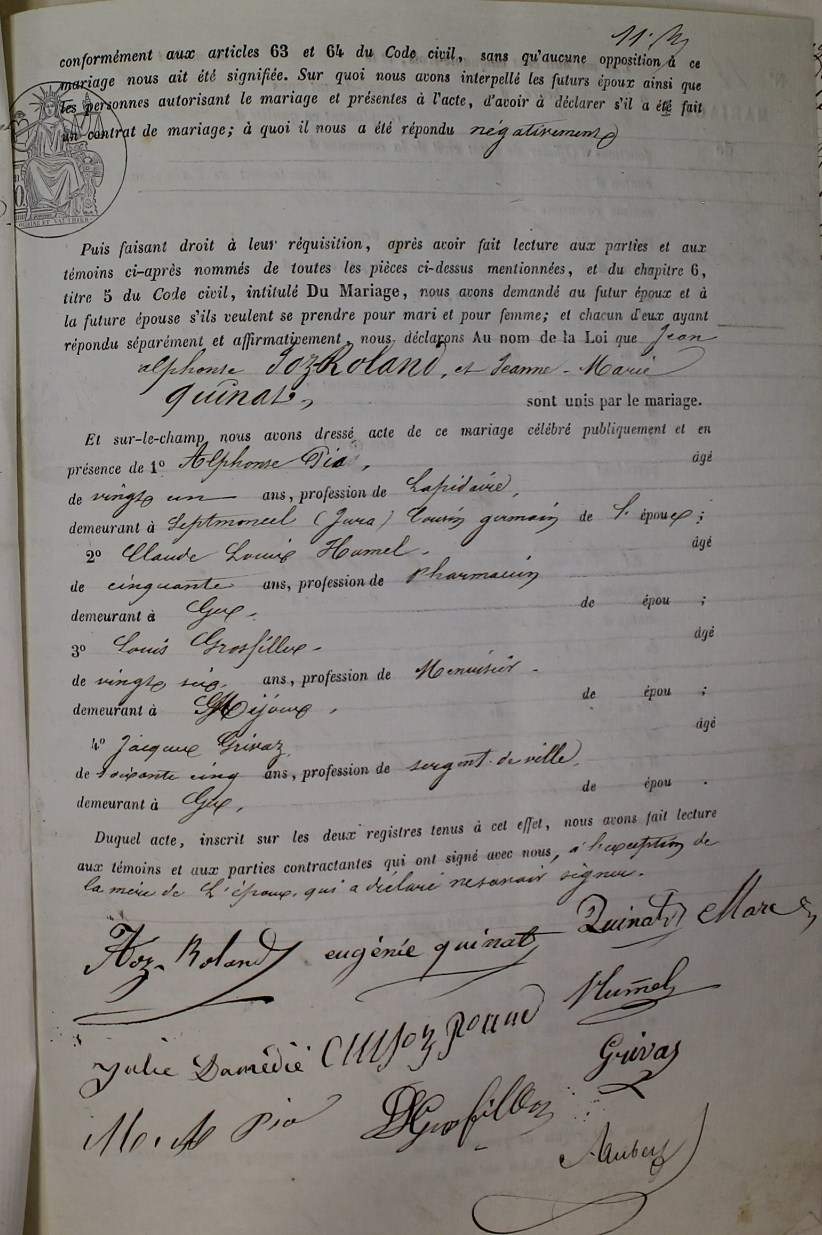 conformément aux articles 63 et 64 du Code civil, sans qu'aucune opposition à ce
mariage nous ait été signifiée. Sur quoi nous avons interpellé les futurs époux ainsi que
les personnes autorisant le mariage et présentes à l'acte, d'avoir à déclarer s'il a été fait
un contrat de mariage; à quoi il nous a été répondu négativement
Puis faisant droit à leur réquisition, après avoir fait lecture aux parties et aux
témoins ci-après nommés de toutes les pièces ci-dessus mentionnées, et du chapitre 6,
titre 5 du Code civil, intitulé Du Mariage, nous avons demandé au futur époux et à
la future épouse s'ils veulent se prendre pour mari et pour femme; et chacun d'eux ayant
répondu séparément et affirmativement, nous déclarons Au nom de la Loi que Jean
alphonse Joz-Roland, et Jeanne-Marie
quinat, sont unis par le mariage.
Et sur-le-champ nous avons dressé acte de ce mariage célébré publiquement et en
présence de 1º Alphonse Pia, âgé
de vingt un ans, profession de Lapidaire,
demeurant à Septmoncel (Jura) Cousin germain de l'époux;
2º Claude Louis Humel, âgé
de cinquante ans, profession de Pharmacien
demeurant à Gex. de épou ;
3º Louis Grosfillex. âgé
de vingt six ans, profession de Menuisier.
demeurant à Mijoux, de épou ;
4º Jacques Grivaz, âgé
de soixante cinq ans, profession de sergent de ville,
demeurant à Gex, de épou .
Duquel acte, inscrit sur les deux registres tenus à cet effet, nous avons fait lecture
aux témoins et aux parties contractantes qui ont signé avec nous, à l'exception de
la mère de l'époux, qui a déclaré ne savoir signer.
Joz-Roland eugénie quinat Quinat Marc
Julie Damédié Joz Roland Humel
Grivaz
Pia Grosfillex